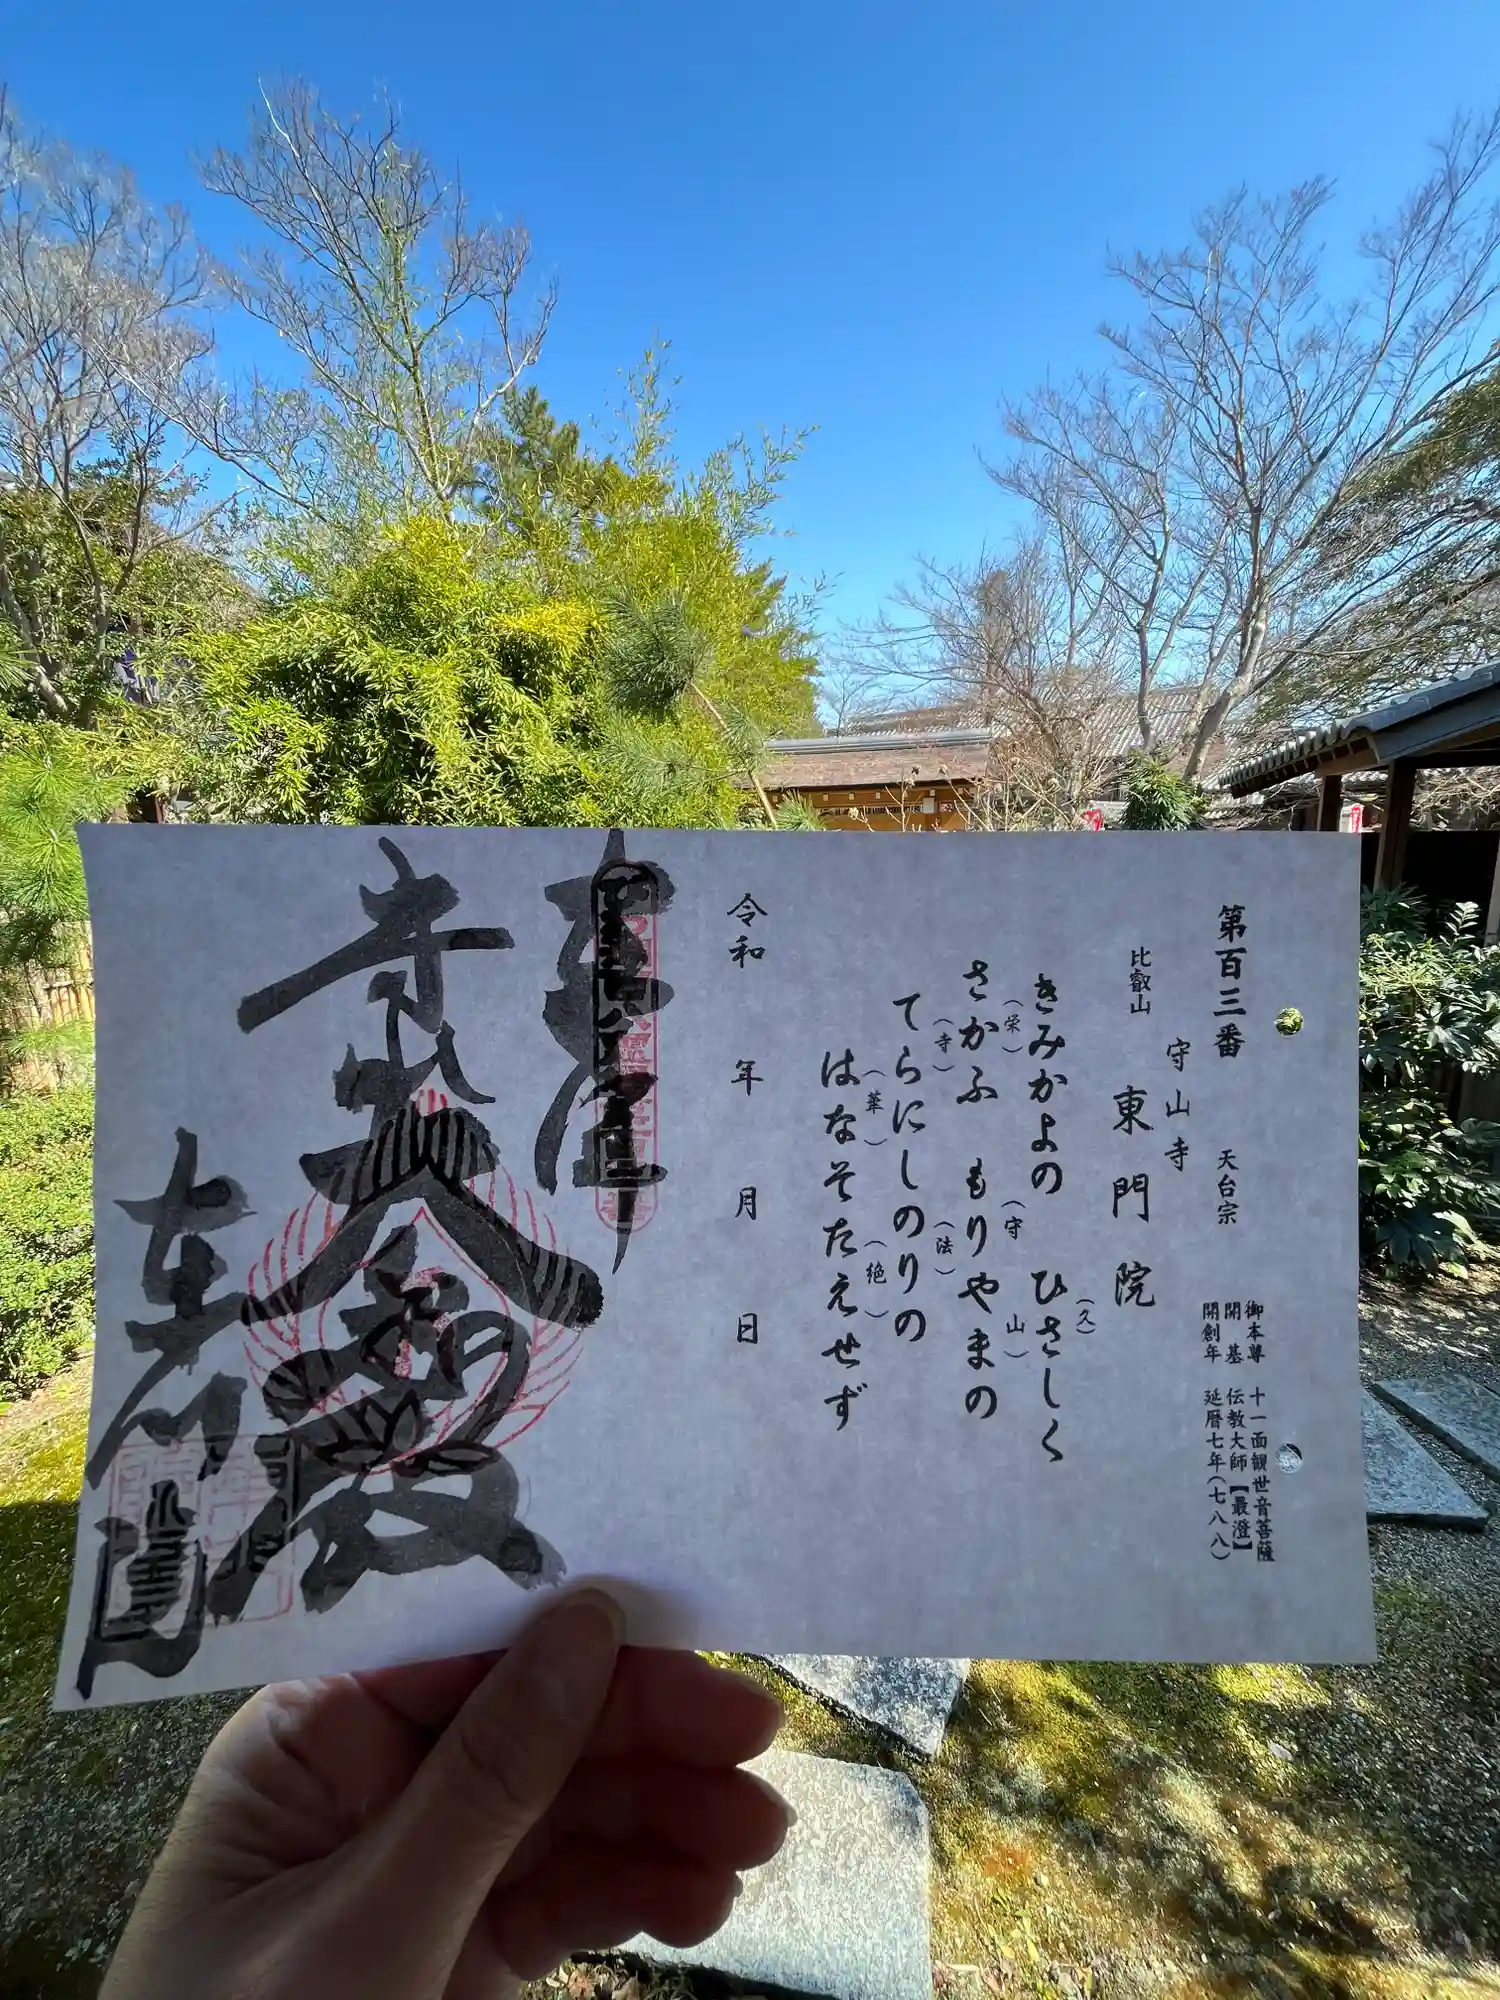 第百三番 天台宗
御本尊 十一面観世音菩薩
開基 伝教大師【最澄】
開創年 延暦七年(七八八)
守山寺
比叡山 東門院
きみかよの ひさしく
(久)
さかふ もりやまの
(栄) (守 山)
てらにしのりの
(寺) (法)
はなそたえせず
(華) (絶)
令和 年 月 日
奉拝
大悲殿
東門院